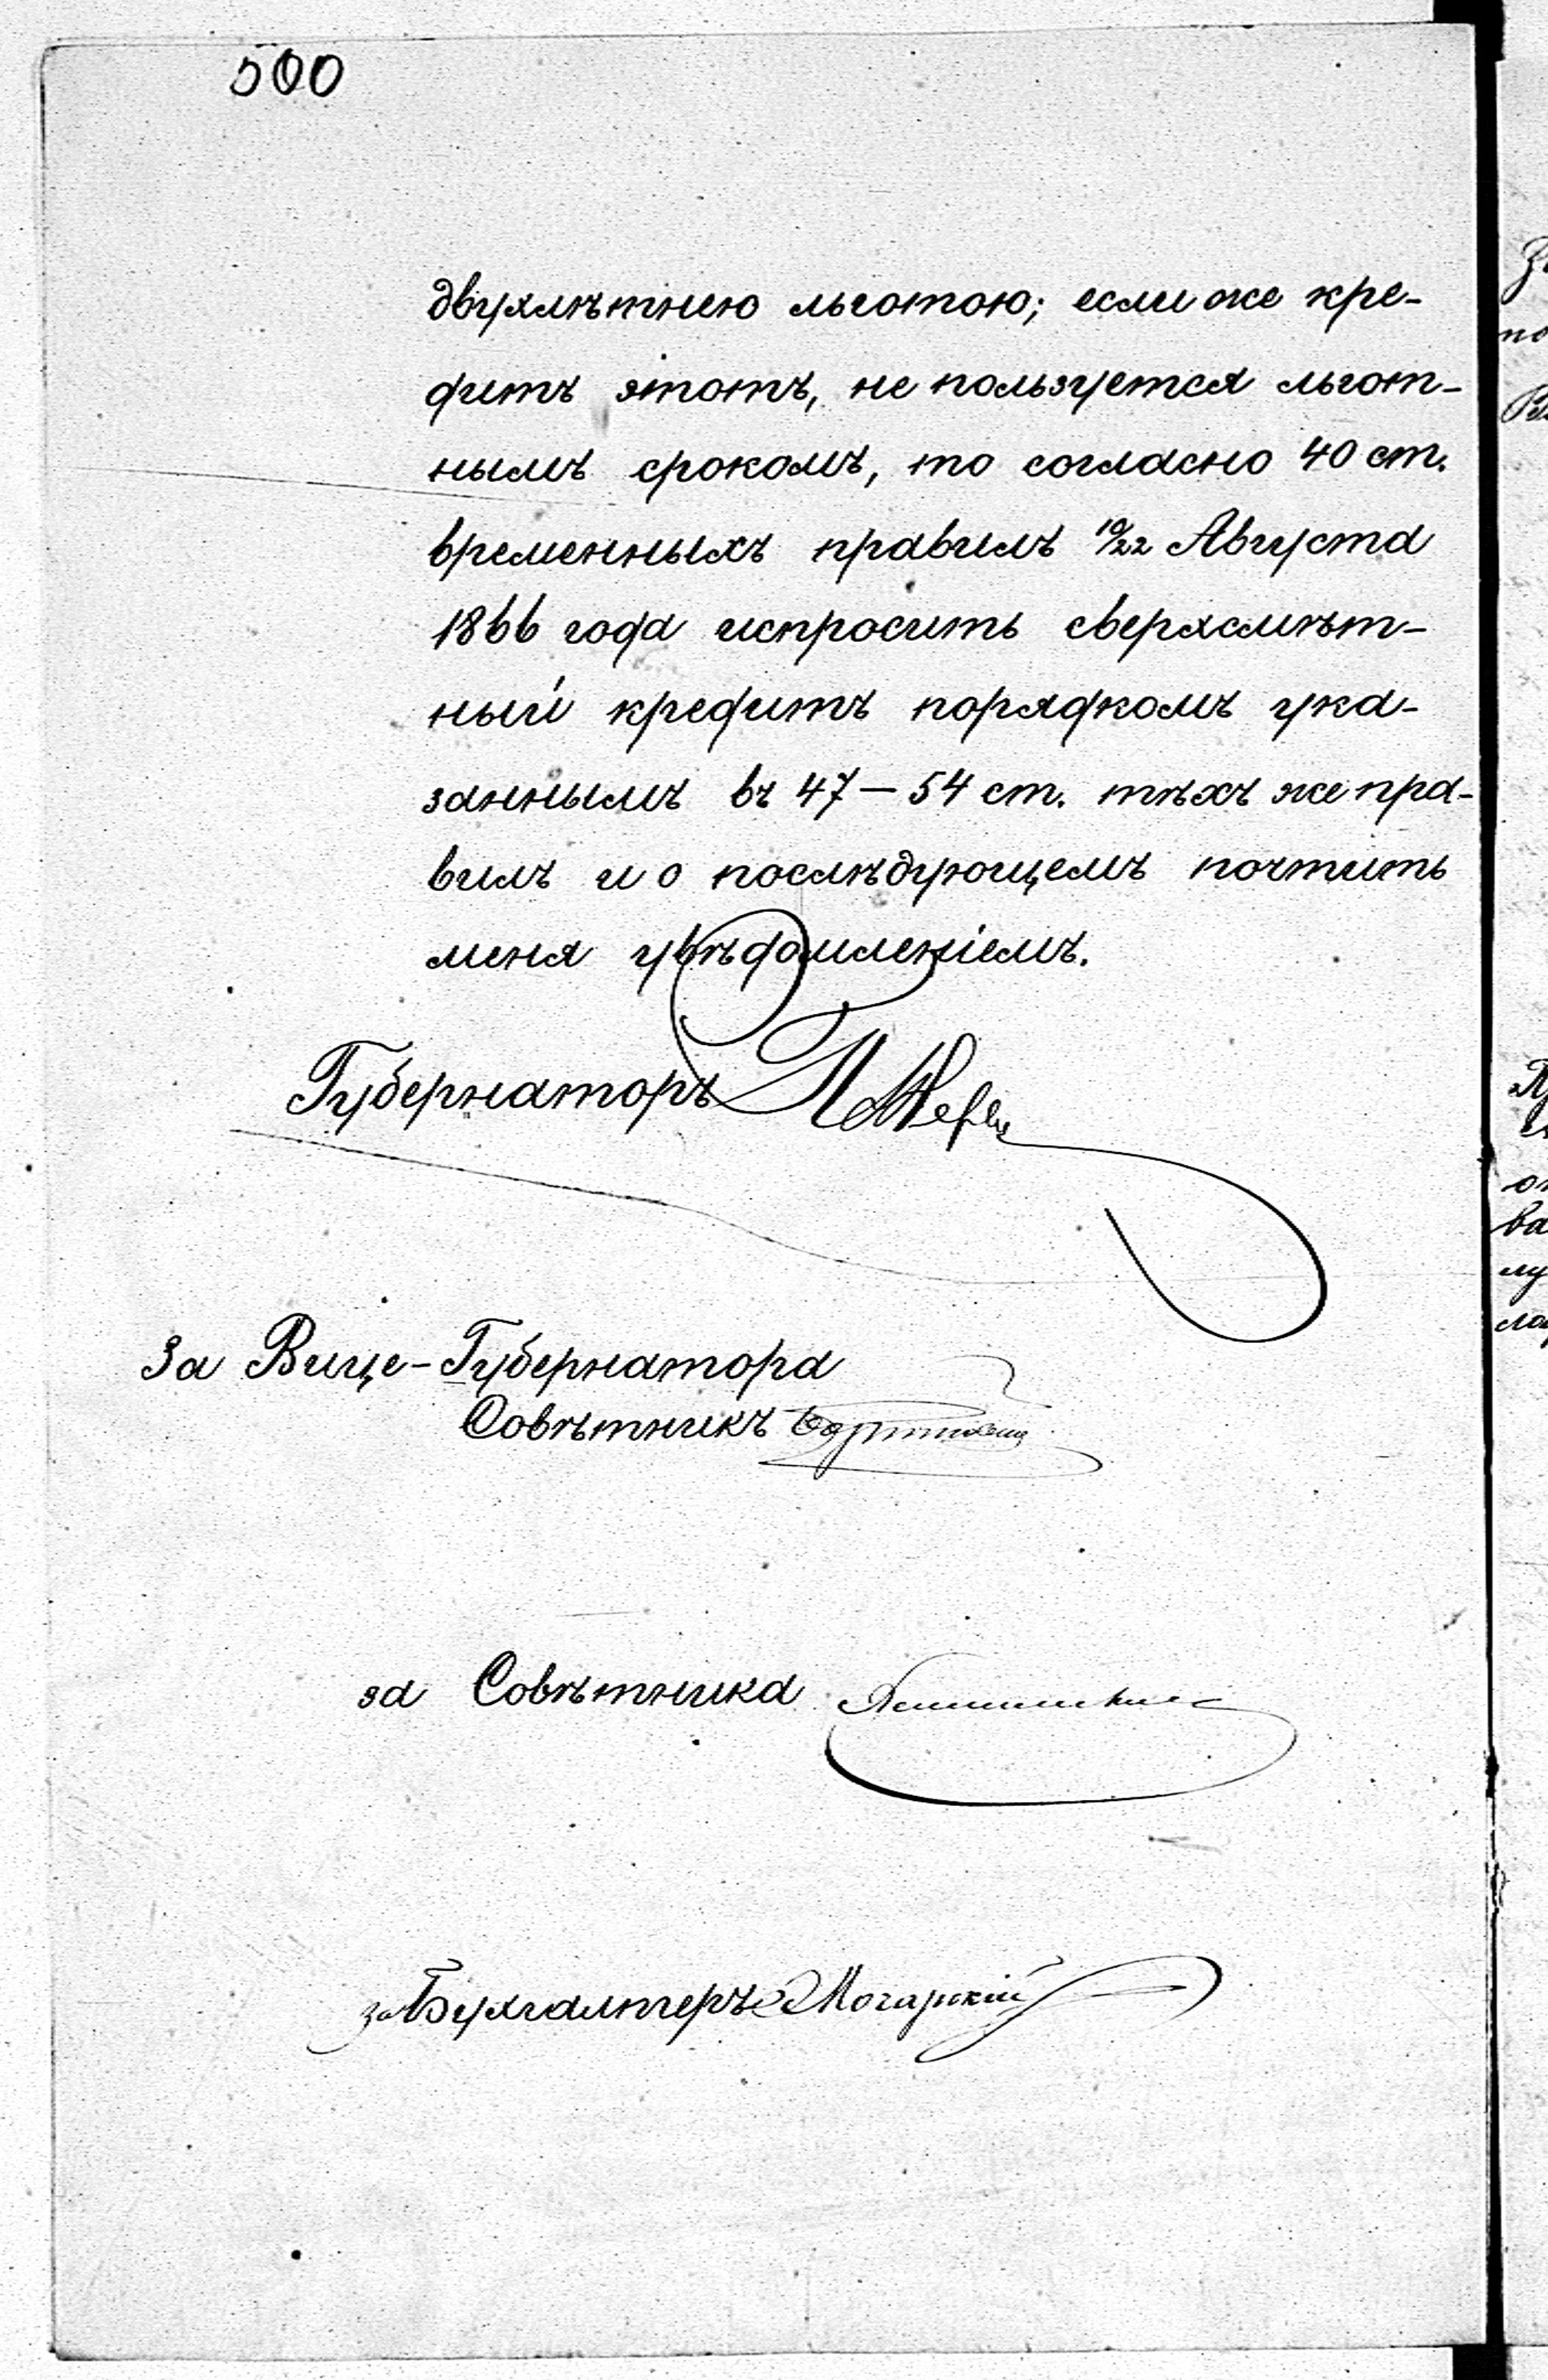 500
двухлѣтнею льготою; если же кре-
дитъ этотъ, не пользуется льгот-
нымъ срокомъ, то согласно 40 ст.
временныхъ правилъ 10/22 Августа
1866 года испросить сверхсмѣт-
ный кредитъ порядкомъ ука-
заннымъ въ 47 — 54 ст. тѣхъ же пра-
вилъ и о послѣдующемъ почтить
меня увѣдомленіемъ.
Губернаторъ
За Вице-Губернатора
Совѣтникъ
за Совѣтника
за Бухгалтеръ Мочарскій